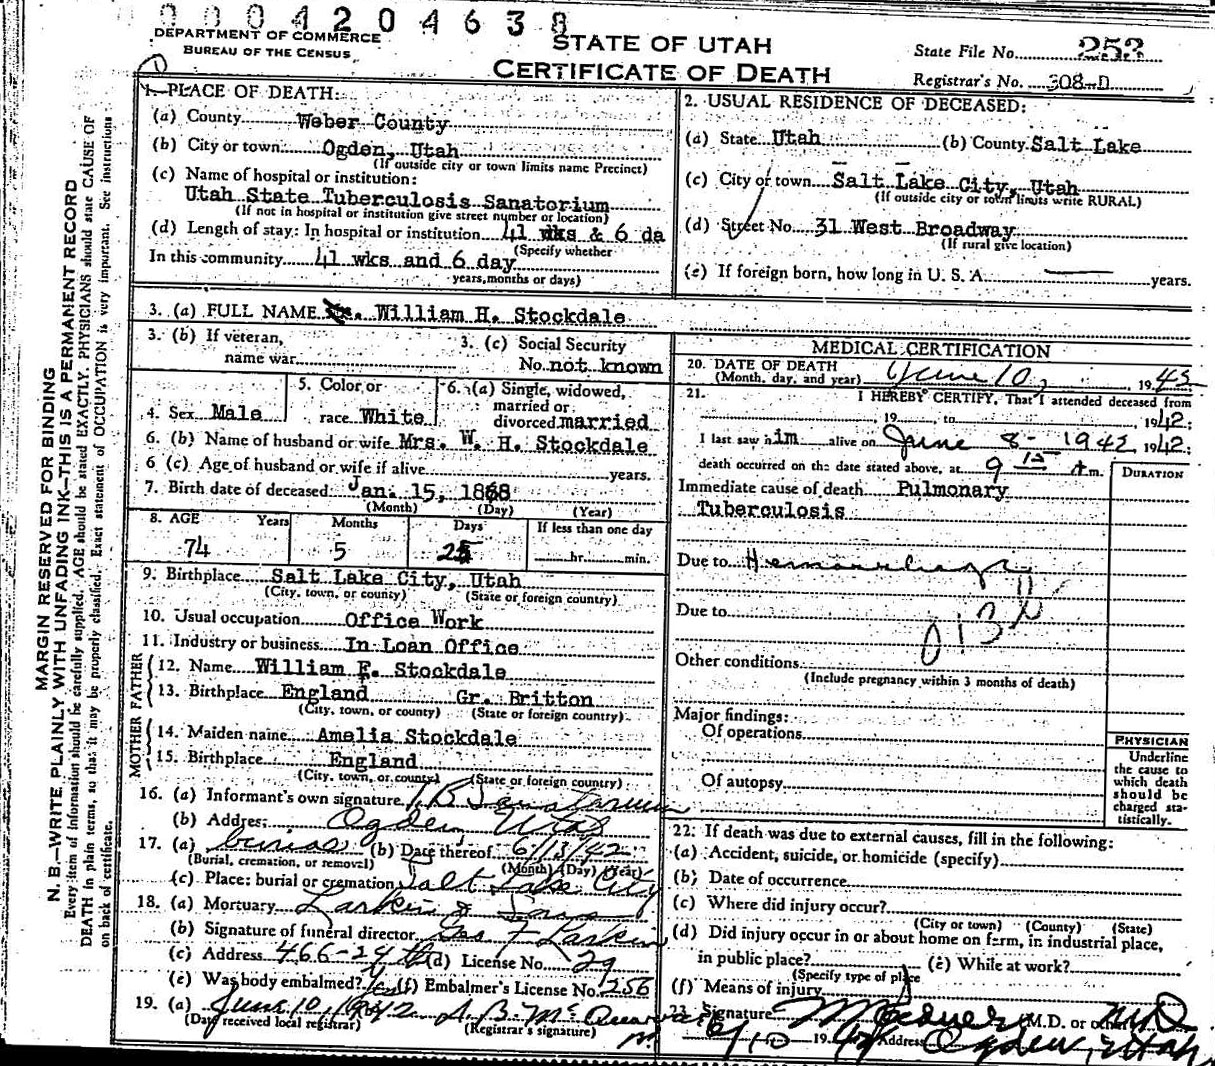 0004204638
DEPARTMENT OF COMMERCE
BUREAU OF THE CENSUS
STATE OF UTAH
CERTIFICATE OF DEATH
State File No. 253
Registrar's No. 308-D
MARGIN RESERVED FOR BINDING
N. B.—WRITE PLAINLY WITH UNFADING INK—THIS IS A PERMANENT RECORD
Every item of information should be carefully supplied. AGE should be stated EXACTLY. PHYSICIANS should state CAUSE OF
DEATH in plain terms, so that it may be properly classified. Exact statement of OCCUPATION is very important. See instructions
on back of certificate.
1. PLACE OF DEATH:
(a) County Weber County
(b) City or town Ogden, Utah
(If outside city or town limits name Precinct)
(c) Name of hospital or institution:
Utah State Tuberculosis Sanatorium
(If not in hospital or institution give street number or location)
(d) Length of stay: In hospital or institution 41 wks & 6 da
(Specify whether
In this community 41 wks and 6 day
years, months or days)
2. USUAL RESIDENCE OF DECEASED:
(a) State Utah (b) County Salt Lake
(c) City or town Salt Lake City, Utah
(If outside city or town limits write RURAL)
(d) Street No. 31 West Broadway
(If rural give location)
(e) If foreign born, how long in U. S. A. years.
3. (a) FULL NAME William H. Stockdale
3. (b) If veteran,
name war
3. (c) Social Security
No. not known
4. Sex Male
5. Color or
race White
6. (a) Single, widowed,
married or
divorced married
6. (b) Name of husband or wife Mrs. W. H. Stockdale
6 (c) Age of husband or wife if alive years.
7. Birth date of deceased: Jan. 15, 1868
(Month) (Day) (Year)
8. AGE Years Months Days If less than one day
74 5 25 hr. min.
9. Birthplace Salt Lake City, Utah
(City, town, or county) (State or foreign country)
10. Usual occupation Office Work
11. Industry or business In Loan Office
FATHER
12. Name William F. Stockdale
13. Birthplace England Gr. Britton
(City, town, or county) (State or foreign country)
MOTHER
14. Maiden name Amelia Stockdale
15. Birthplace England
(City, town, or county) (State or foreign country)
16. (a) Informant's own signature
(b) Address: Ogden Utah
17. (a) burial (b) Date thereof 6/13/42
(Burial, cremation, or removal) (Month) (Day) (Year)
(c) Place: burial or cremation Salt Lake City
18. (a) Mortuary Larkin & Sons
(b) Signature of funeral director Geo F Larkin
(c) Address 466-24th (d) License No. 29
(e) Was body embalmed? Yes (f) Embalmer's License No. 256
19. (a) June 10, 1942
(Date received local registrar) (Registrar's signature)
MEDICAL CERTIFICATION
20. DATE OF DEATH
(Month, day, and year) June 10, 1942
21. I HEREBY CERTIFY, That I attended deceased from
, 19 , to , 1942;
I last saw him alive on June 8 - 1942, 1942;
death occurred on the date stated above, at 9 15 A m.
DURATION
Immediate cause of death Pulmonary
Tuberculosis
Due to Hemorrhage
Due to
013
Other conditions
(Include pregnancy within 3 months of death)
Major findings:
Of operations
Of autopsy
PHYSICIAN
Underline
the cause to
which death
should be
charged sta-
tistically.
22. If death was due to external causes, fill in the following:
(a) Accident, suicide, or homicide (specify)
(b) Date of occurrence
(c) Where did injury occur?
(City or town) (County) (State)
(d) Did injury occur in or about home on farm, in industrial place,
in public place? (e) While at work?
(Specify type of place
(f) Means of injury
23. Signature (M.D. or other) MD
6/10 1942 Address Ogden, Utah